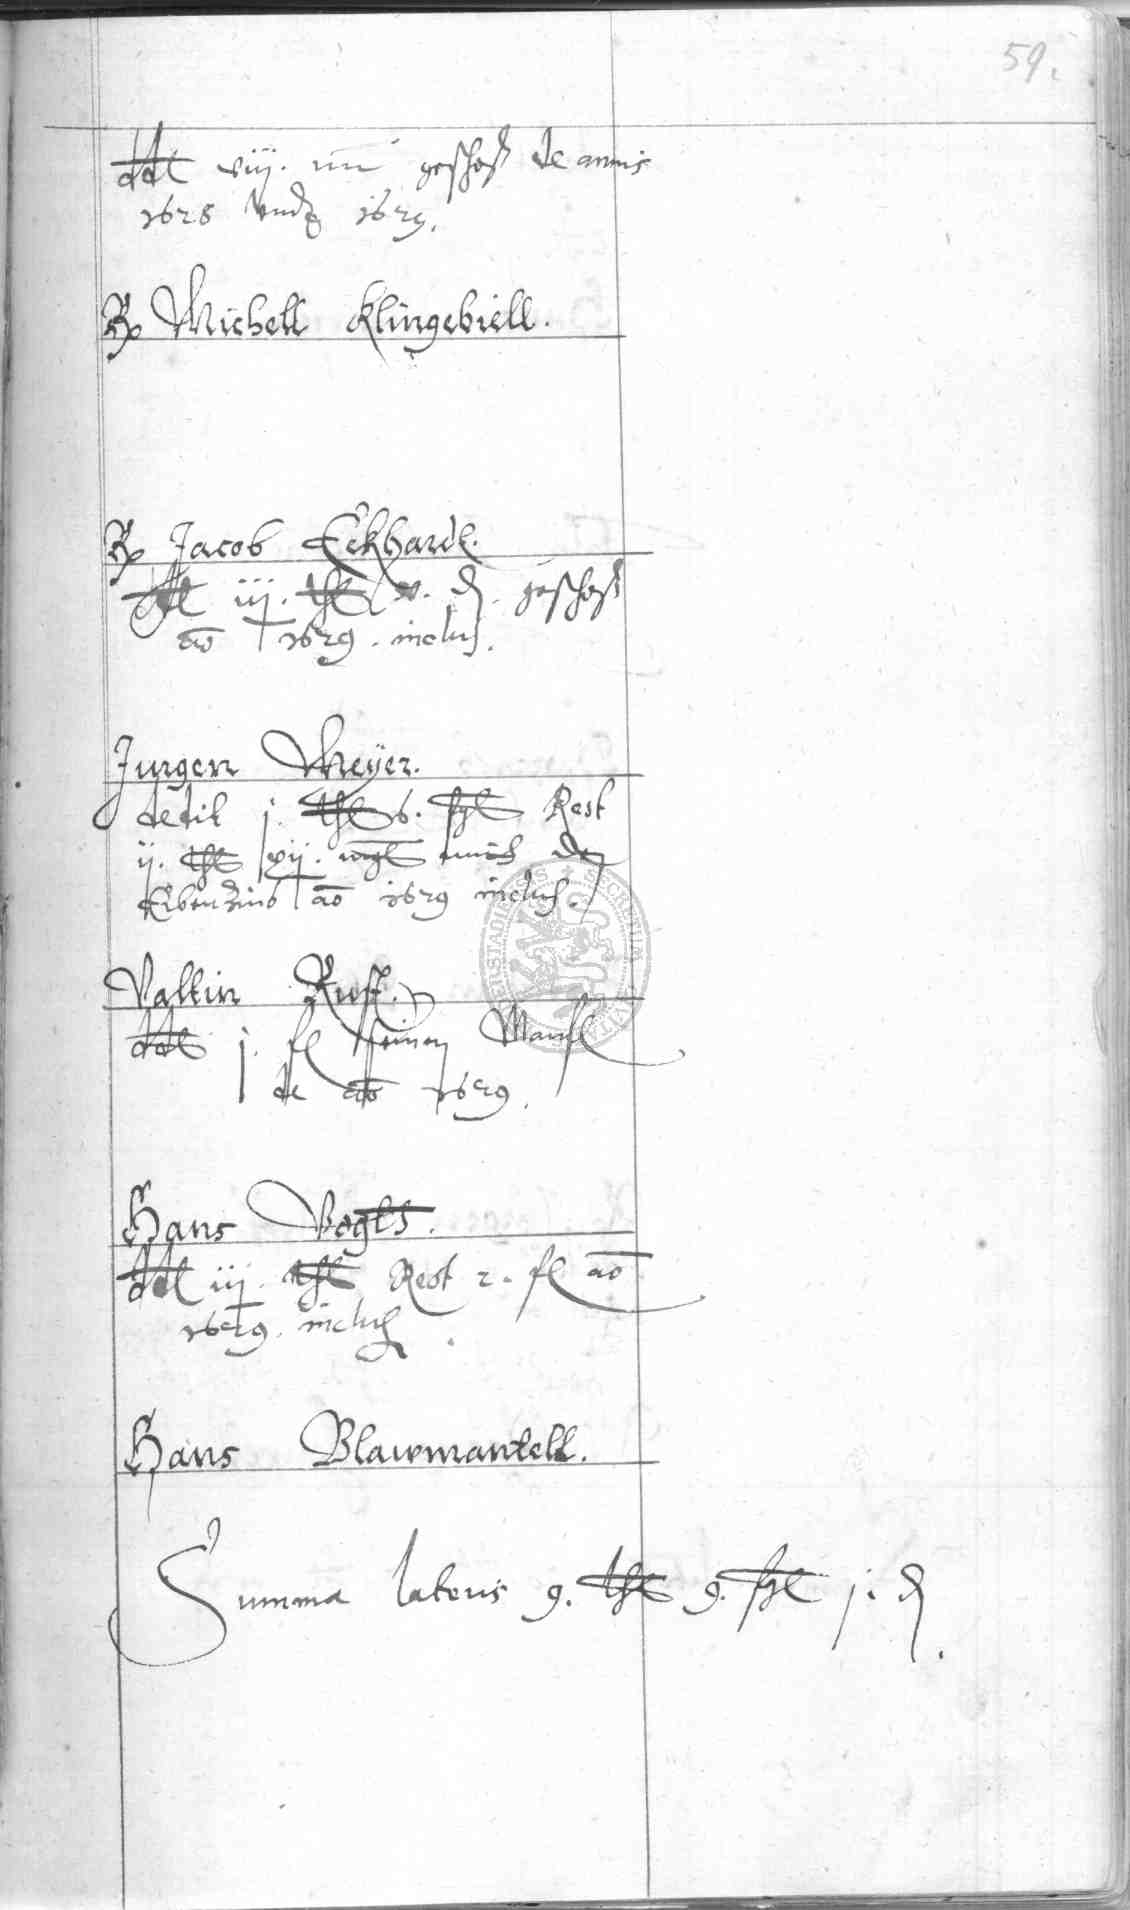 59.
ddt viij. mℓ geschoß de annis
1628 Vndt 1629.
Michell Klingebiell.
Jacob Eckhardt.
ddt iij. thl v. d. geschoß
ao 1629. inclus.
Jurgen Meyer.
dedit j. thl 6. sgl Rest
ij. thl xij. mgl
Erbenzins ao 1629 inclus.
Valtin Rust.
ddt j. fl seinen
de ao 1629.
Hans Vogts.
ddt iij. thl Rest 2. fl ao
1629. inclus.
Hans Blawmantell.
Summa lateris 9. thl 9. sgl j. d.
SECRETUM CIVITA ERSTADIENSIS